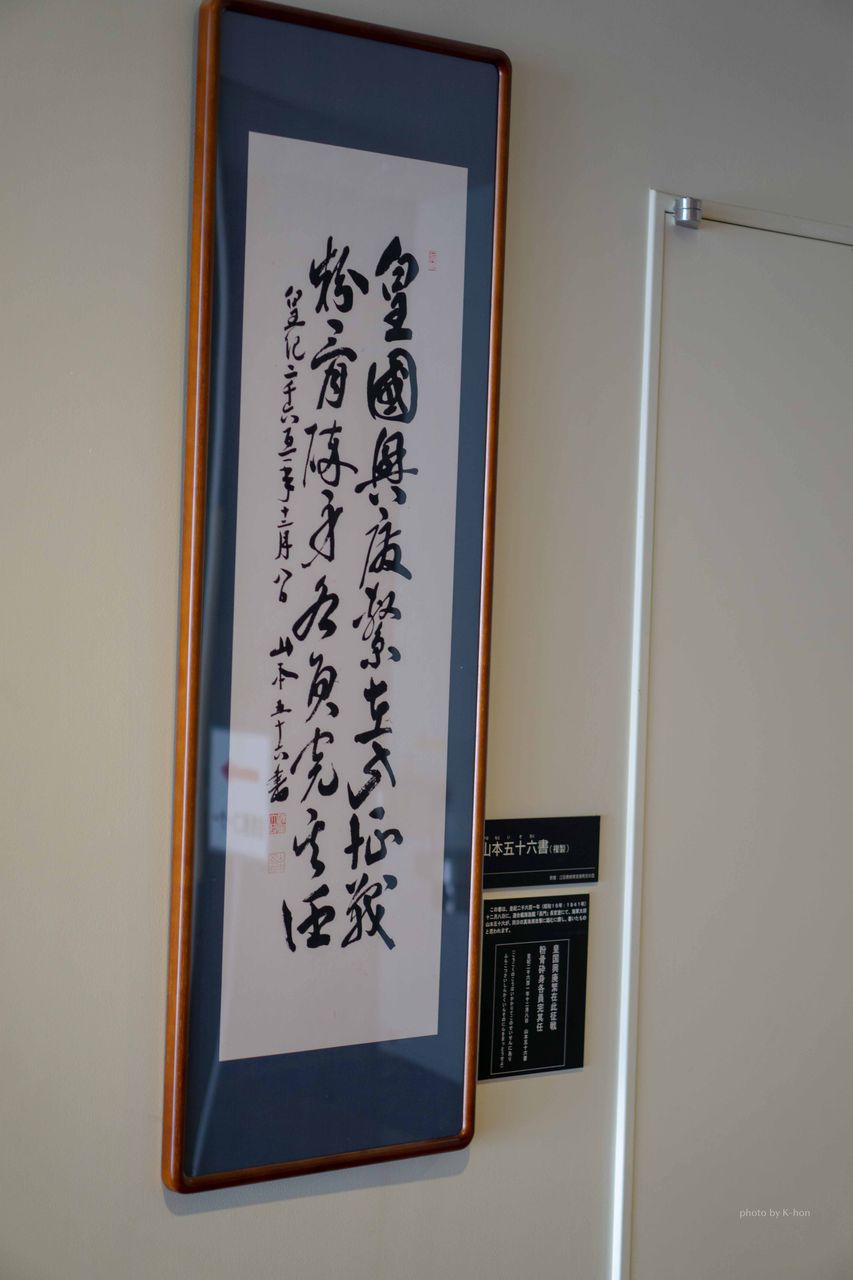 皇國興廢繫在此征戰
粉骨碎身各員完其任
皇紀二千六百一年十二月八日 山本五十六書
山本五十六書(複製)
この書は、皇紀二千六百一年(昭和16年:1941年)
十二月八日に、連合艦隊旗艦「長門」長官室にて、海軍大将
山本五十六が、
と思われます。
皇国興廃繋在此征戦
粉骨砕身各員完其任
皇紀二千六百一年十二月八日 山本五十六書
photo by K-hon